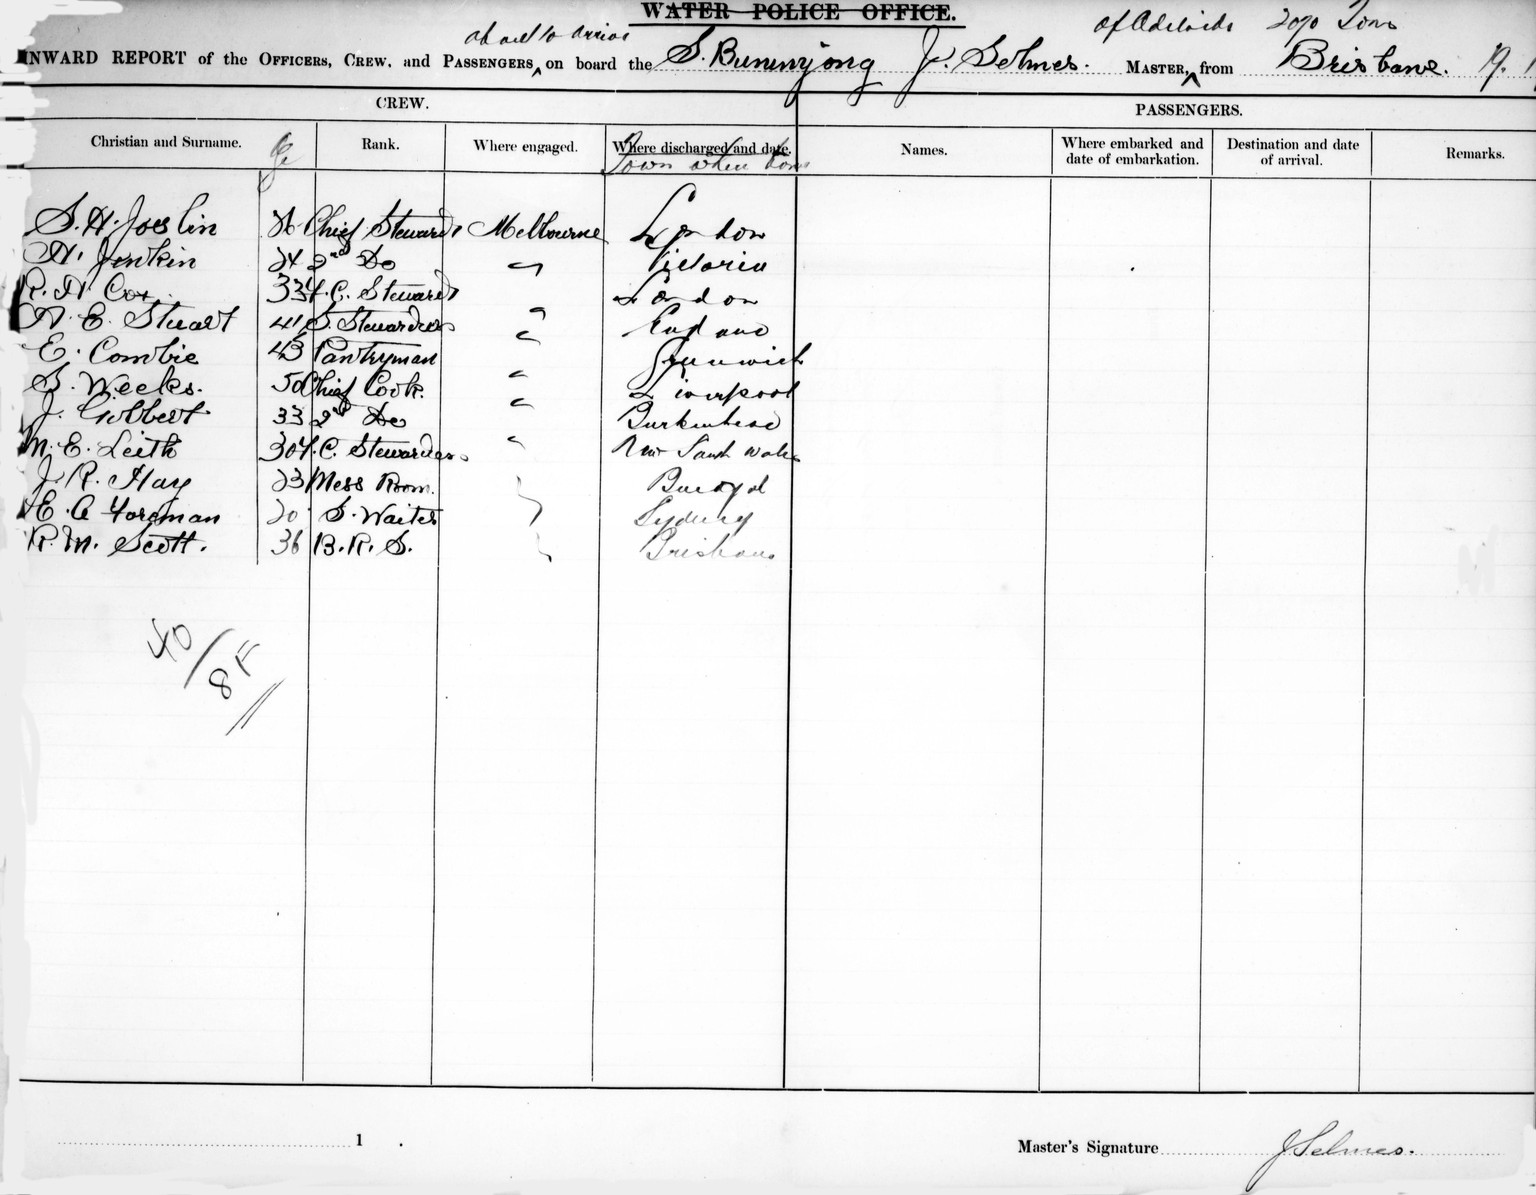 WATER POLICE OFFICE.
about to arrive of Adelaide 2070 Tons
INWARD REPORT of the OFFICERS, CREW, and PASSENGERS, on board the S. Buninyong J. Selmes. MASTER, from Brisbane. 19.
CREW. PASSENGERS.
Christian and Surname. Age Rank. Where engaged. Where discharged and date. Names. Where embarked and date of embarkation. Destination and date of arrival. Remarks.
Town where born
S. H. Joslin Chief Steward Melbourne London
H. Jenkin 24 2nd Do " Victoria
R. H. Cox 33 F. C. Steward London
A. E. Stuart 41 S. Stewardess " England
E. Combie 43 Pantryman " Greenwich
S. Weeks. 50 Chief Cook. " Liverpool
J. Gobbert 33 2nd Do " Burkenhead
M. E. Leith 30 F. C. Stewardess " New South Wales
J. R. Hay 23 Mess Room.
E. A Foreman 20 S. Waiter Sydney
R. M. Scott. 36 B. R. S. Brisbane
40/8F//
1
Master's Signature J Selmes.